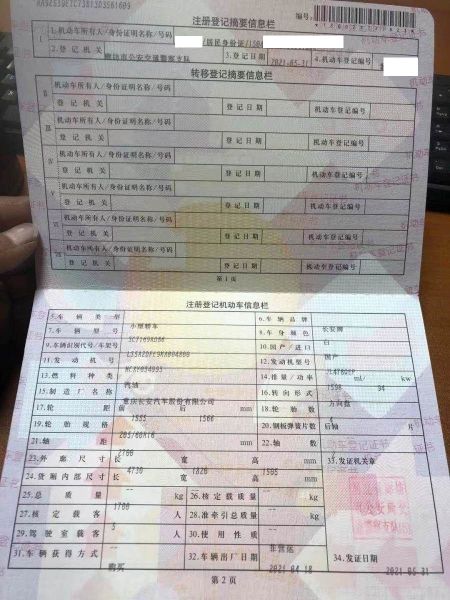 注册登记摘要信息栏
编号:
Ⅰ
1.机动车所有人/身份证明名称/号码
/居民身份证/
2.登记机关
廊坊市公安交通警察支队
3.登记日期
2021-05-31
4.机动车登记编号
转移登记摘要信息栏
Ⅱ
机动车所有人/身份证明名称/号码
登记机关 登记日期 机动车登记编号
Ⅲ
机动车所有人/身份证明名称/号码
登记机关 登记日期 机动车登记编号
Ⅳ
机动车所有人/身份证明名称/号码
登记机关 登记日期 机动车登记编号
Ⅴ
机动车所有人/身份证明名称/号码
登记机关 登记日期 机动车登记编号
Ⅵ
机动车所有人/身份证明名称/号码
登记机关 登记日期 机动车登记编号
Ⅶ
机动车所有人/身份证明名称/号码
登记机关 登记日期 机动车登记编号
第1页
注册登记机动车信息栏
5.车辆类型 小型轿车 6.车辆品牌 长安牌
7.车辆型号 8.车身颜色 白
9.车辆识别代号/车架号 10.国产/进口 国产
11.发动机号 12.发动机型号
13.燃料种类 汽油 14.排量/功率 1598 ml/ 94 kw
15.制造厂名称 重庆长安汽车股份有限公司 16.转向形式 方向盘
17.轮距 前 1555 后 1566 mm 18.轮胎数 4
19.轮胎规格 205/60R16 20.钢板弹簧片数 后轴 -- 片
21.轴距 2700 mm 22.轴数 2
23.外廓尺寸 长 4730 宽 1820 高 1505 mm
33.发证机关章
24.货厢内部尺寸 长 -- 宽 -- 高 -- mm
25.总质量 1760 kg 26.核定载质量 -- kg
27.核定载客 5 人 28.准牵引总质量 -- kg
29.驾驶室载客 -- 人 30.使用性质 非营运
31.车辆获得方式 购买 32.车辆出厂日期 2021-04-18
34.发证日期 2021-05-31
第2页